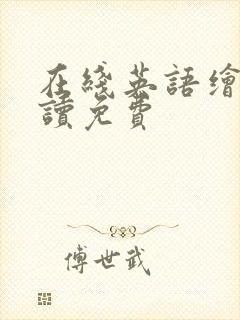 在綫英語繪
讀免費
傅世武